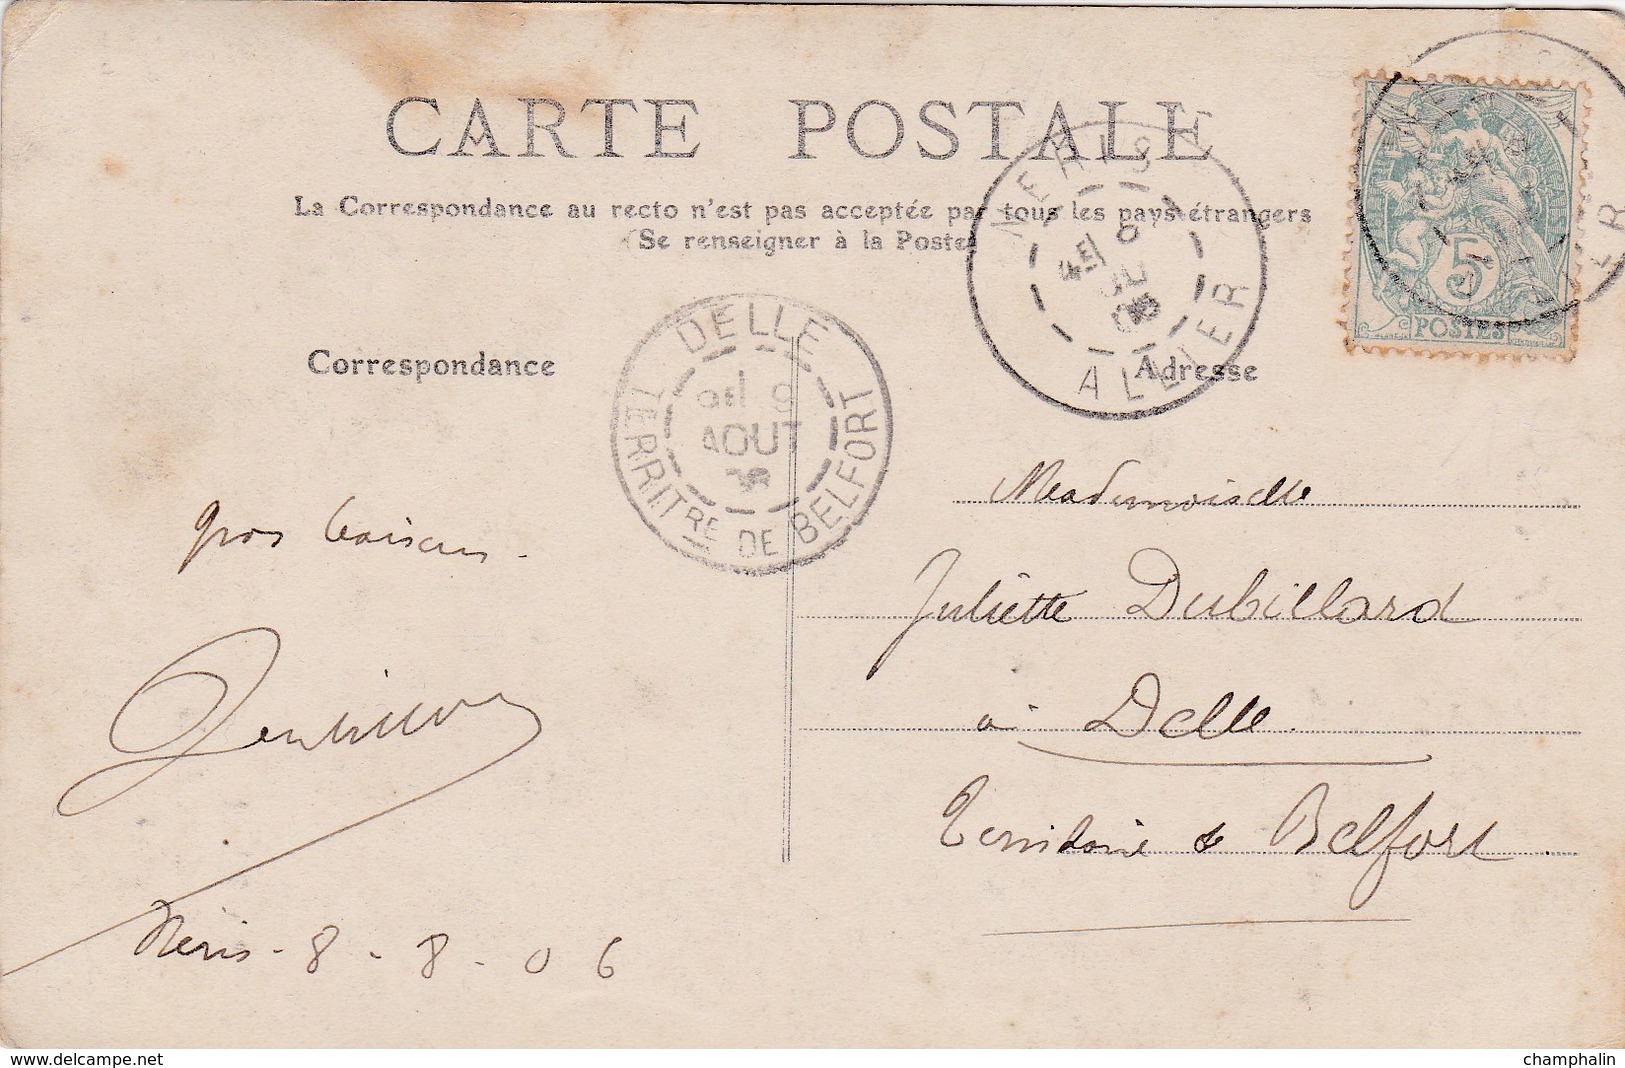 CARTE POSTALE
La Correspondance au recto n'est pas acceptée par tous les pays étrangers
(Se renseigner à la Poste)
Correspondance
Adresse
NERIS
ALLIER
DELLE
9
AOUT
TERRITRE DE BELFORT
5
POSTES
gros baisers.
Mademoiselle
Juliette Dubillard
à Delle.
Territoire de Belfort.
Néris - 8 - 8 - 06
www.delcampe.net
champhalin